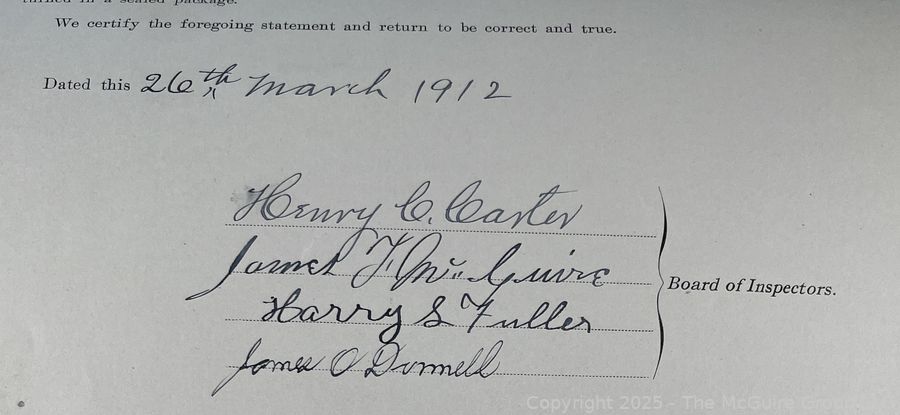 turned in a sealed package.
We certify the foregoing statement and return to be correct and true.
Dated this 26th March 1912
Henry C. Carter
James F. McGuire
Harry S Fuller
James O Donnell
Board of Inspectors.
Copyright 2025 - The McGuire Group